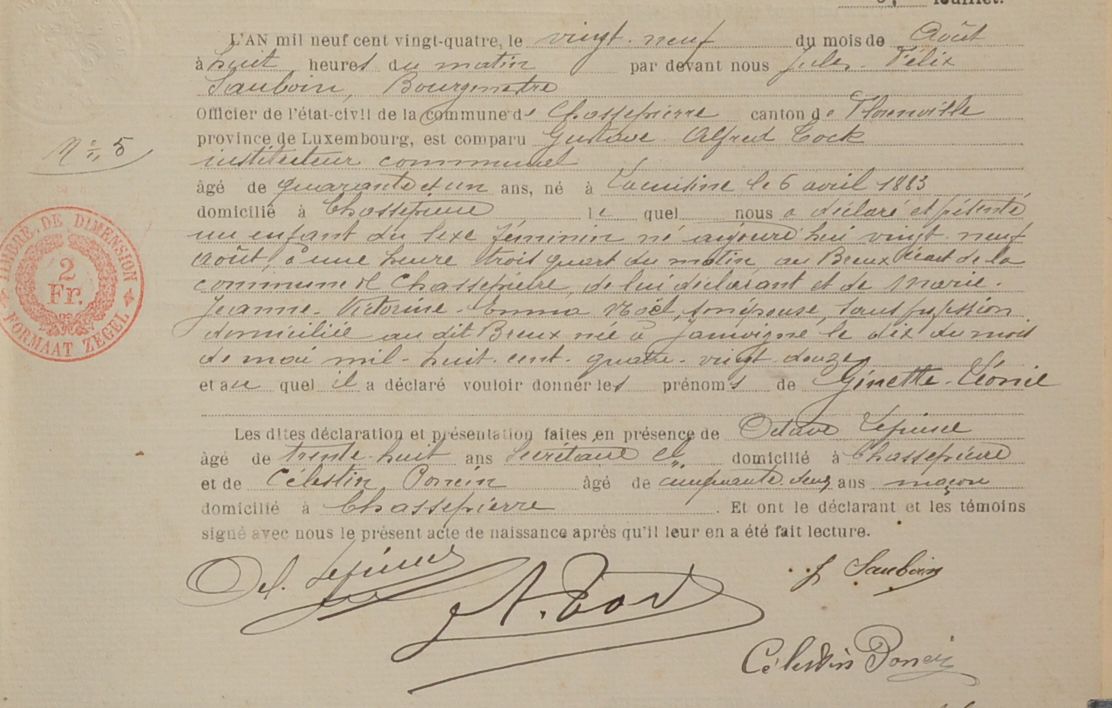 feuillet.
L'AN mil neuf cent vingt-quatre, le vingt-neuf du mois de Août
à huit heures du matin par devant nous Jules Félix
Sauboin, Bourgmestre
Officier de l'état-civil de la commune de Chassepierre canton de Florenville
N° 5
province de Luxembourg, est comparu Gustave Alfred Tock
instituteur communal
âgé de quarante et un ans, né à Lacuisine le 6 avril 1883
domicilié à Chassepierre, le quel nous a déclaré et présenté
un enfant du sexe féminin né aujourd'hui vingt neuf
Août, à une heure trois quart du matin, au Breux écart de la
commune de Chassepierre, de lui déclarant et de Marie-
Jeanne-Victorine-Emma Noël, son épouse, sans profession
domiciliée au dit Breux née à Jamoigne le dix du mois
de mai mil-huit-cent-quatre-vingt-douze
et au quel il a déclaré vouloir donner les prénoms de Ginette-Léonie
Les dites déclaration et présentation faites en présence de Octave Lepince
âgé de trente-huit ans Secrétaire cl domicilié à Chassepierre
et de Célestin Poncin âgé de cinquante deux ans maçon
domicilié à Chassepierre. Et ont le déclarant et les témoins
signé avec nous le présent acte de naissance après qu'il leur en a été fait lecture.
TIMBRE DE DIMENSION
2
Fr.
FORMAAT ZEGEL
J Sauboin
Célestin Poncin